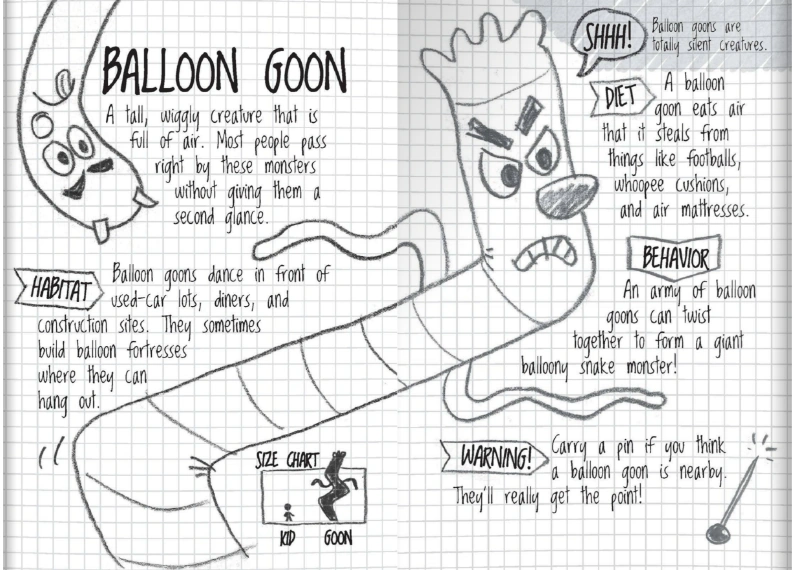 BALLOON GOON
A tall, wiggly creature that is
full of air. Most people pass
right by these monsters
without giving them a
second glance.
HABITAT
Balloon goons dance in front of
used-car lots, diners, and
construction sites. They sometimes
build balloon fortresses
where they can
hang out.
SIZE CHART
KID
GOON
SHHH!
Balloon goons are
totally silent creatures.
DIET
A balloon
goon eats air
that it steals from
things like footballs,
whoopee cushions,
and air mattresses.
BEHAVIOR
An army of balloon
goons can twist
together to form a giant
balloony snake monster!
WARNING!
Carry a pin if you think
a balloon goon is nearby.
They'll really get the point!